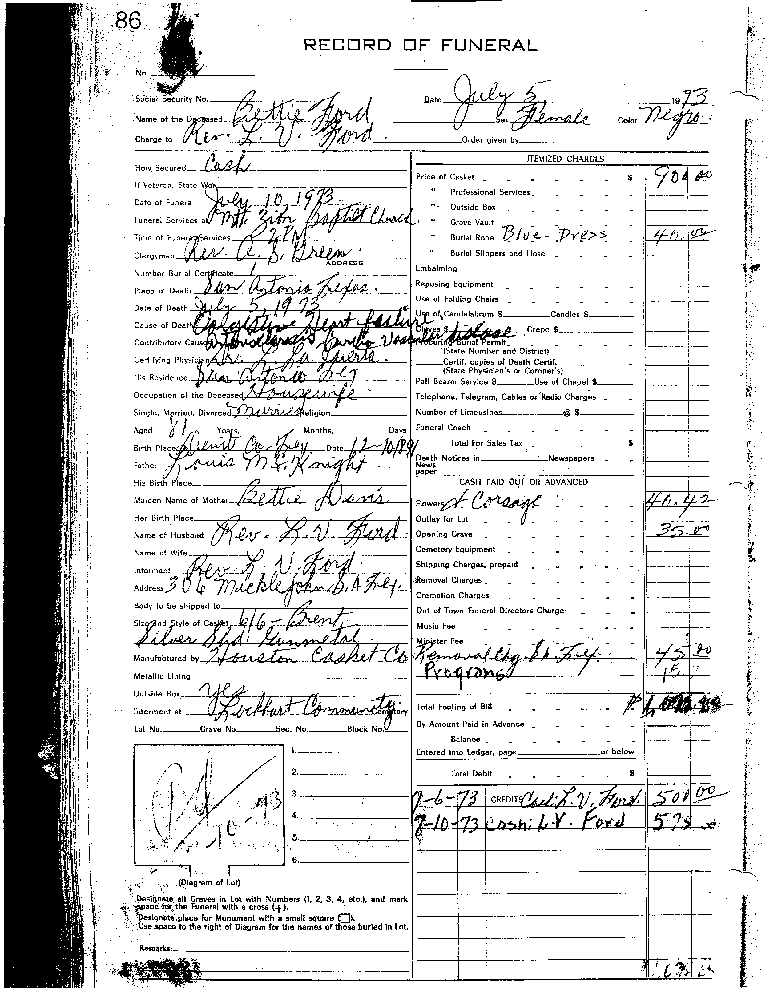 86
RECORD OF FUNERAL
No.
Social Security No. Date July 5 1973
Name of the Deceased Bettie Ford Sex Female Color Negro
Charge to Rev. L. V. Ford Order given by
How Secured Cash
If Veteran, State War
Date of Funeral July 10, 1973
Funeral Services at Mt. Zion Baptist Church
Time of Funeral Services 2 PM
Clergyman Rev. C. S. Green
ADDRESS
Number Burial Certificate
Place of Death San Antonio Texas.
Date of Death July 5, 1973
Cause of Death Congestive Heart failure
Contributory Cause Cardio Vascular disease
Certifying Physician
His Residence San Antonio Tex
Occupation of the Deceased Housewife
Single, Married, Divorced Married Religion
Aged 81 Years, Months, Days
Birth Place Co. Tex Date 12-10-1891
Father Louis McKnight
His Birth Place
Maiden Name of Mother Bettie Davis
Her Birth Place
Name of Husband Rev. L. V. Ford
Name of Wife
Informant Rev. L. V. Ford
Address 306 Micklejohn S.A Tex.
Body to be shipped to
Size and Style of Casket 6/6 - Brent
Silver Shd. Gunmetal
Manufactured by Houston Casket Co
Metallic Lining
Outside Box yes
Interment at Lockhart Community Cemetery
Lot No. Grave No. Sec. No. Block No.
1.
2.
3.
4.
5.
6.
10-73
(Diagram of Lot)
Designate all Graves in Lot with Numbers (1, 2, 3, 4, etc.), and mark
space for the Funeral with a cross (+).
Designate place for Monument with a small square (□).
Use space to the right of Diagram for the names of those buried in Lot.
Remarks:
ITEMIZED CHARGES
Price of Casket $ 900 00
" Professional Services
" Outside Box
" Grave Vault
" Burial Robe Blue-Dress 40.00
" Burial Slippers and Hose
Embalming
Reposing Equipment
Use of Folding Chairs
Use of Candelabrum $ Candles $
Gloves $ Crape $
Procuring Burial Permit
(State Number and District)
Certif. copies of Death Certif.
(State Physician's or Coroner's)
Pall Bearer Service $ Use of Chapel $
Telephone, Telegram, Cables or Radio Charges
Number of Limousines @ $
Funeral Coach
Total for Sales Tax $
Death Notices in Newspapers
News
paper
CASH PAID OUT OR ADVANCED
Flowers & Corsage 40.42
Outlay for Lot
Opening Grave 35.00
Cemetery Equipment
Shipping Charges, prepaid
Removal Charges
Cremation Charges
Out of Town Funeral Directors Charge
Music Fee
Minister Fee
Removal Chg. SA Tex. 45 00
Programs 15
Total Footing of Bill $
By Amount Paid in Advance
Balance
Entered into Ledger, page or below
Total Debit $
7-6-73 CREDITS Cash L. V. Ford 500 00
7-10-73 Cash: L.V. Ford 575